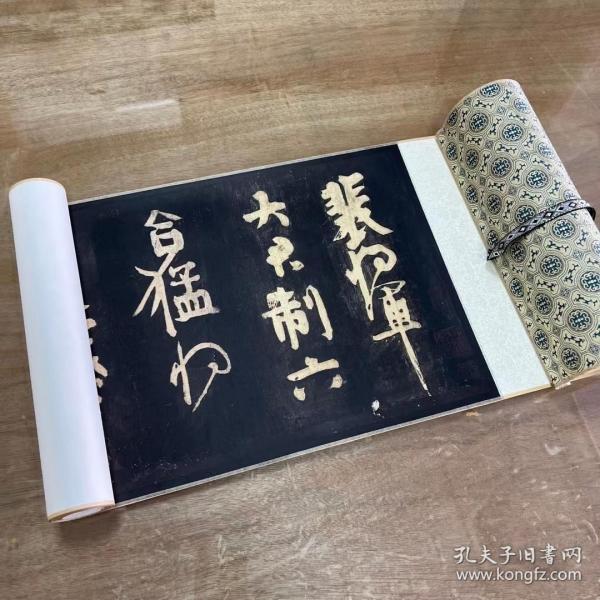 裴将軍
大君制六
合猛将
孔夫子旧书网
www.kongfz.com